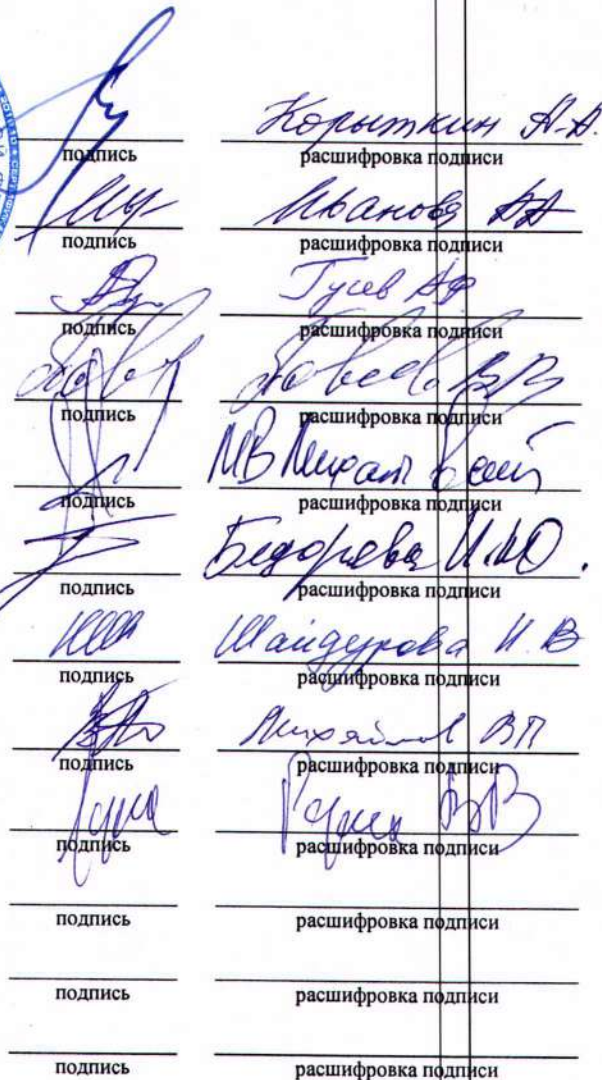 Корыткин А.А.
подпись расшифровка подписи
Иванова АА
подпись расшифровка подписи
Гусев АФ
подпись расшифровка подписи
ВВ
подпись расшифровка подписи
МВ
подпись расшифровка подписи
Бедорева И.Ю.
подпись расшифровка подписи
Шайдурова И.В
подпись расшифровка подписи
Михайлов ВП
подпись расшифровка подписи
ВВ
подпись расшифровка подписи
подпись расшифровка подписи
подпись расшифровка подписи
подпись расшифровка подписи